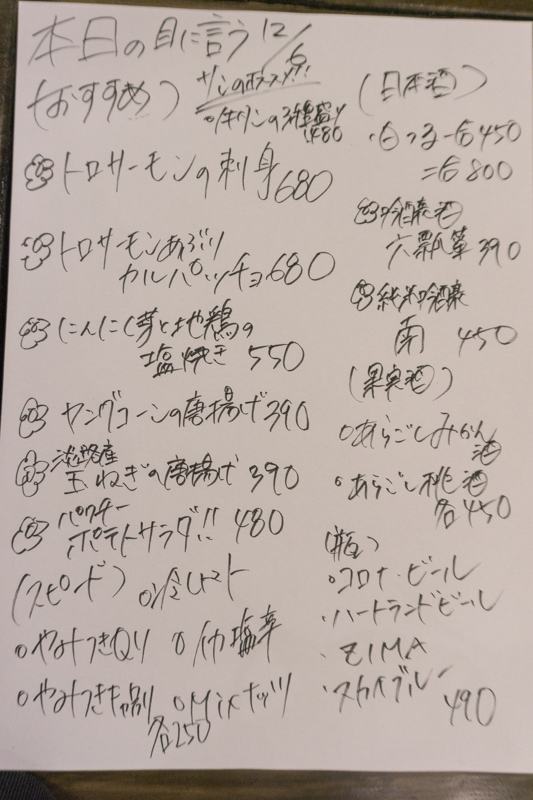 本日の目に言う12/6
(おすすめ)
サンのオススメ!!
480
トロサーモンの刺身680
トロサーモンあぶり
カルパッチョ680
にんにく芽と地鶏の
塩焼き 550
ヤングコーンの唐揚げ390
淡路産
玉ねぎの唐揚げ 390
パクチー
ポテトサラダ!! 480
(スピード)
○冷トマト
○やみつきQり
○イカ塩辛
○やみつききゃ別
○Mixナッツ
各250
(日本酒)
・白つる一合450
二合800
吟醸酒
六瓢箪390
純米吟醸
南 450
(果実酒)
○あらごしみかん
酒
○あらごし桃酒
各450
(瓶)
・コロナ・ビール
・ハートランドビール
・ZIMA
・スカイブルー
490